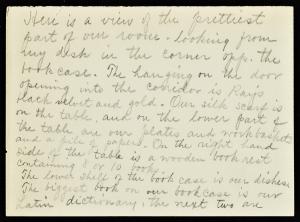 Here is a view of the prettiest
part of our room - looking from
my desk in the corner opp. the
bookcase. The hanging on the door
opening into the corridor is Ray's
black velvet and gold. Our silk scarf is
on the table, and on the lower part of
the table are our plates and workbaskets
and a pile of papers. On the right hand
side of the table is a wooden book rest
containing 9 or 10 books.
The lower shelf of the book case is our dishes.
The biggest book on our bookcase is our
Latin dictionary, the next two are